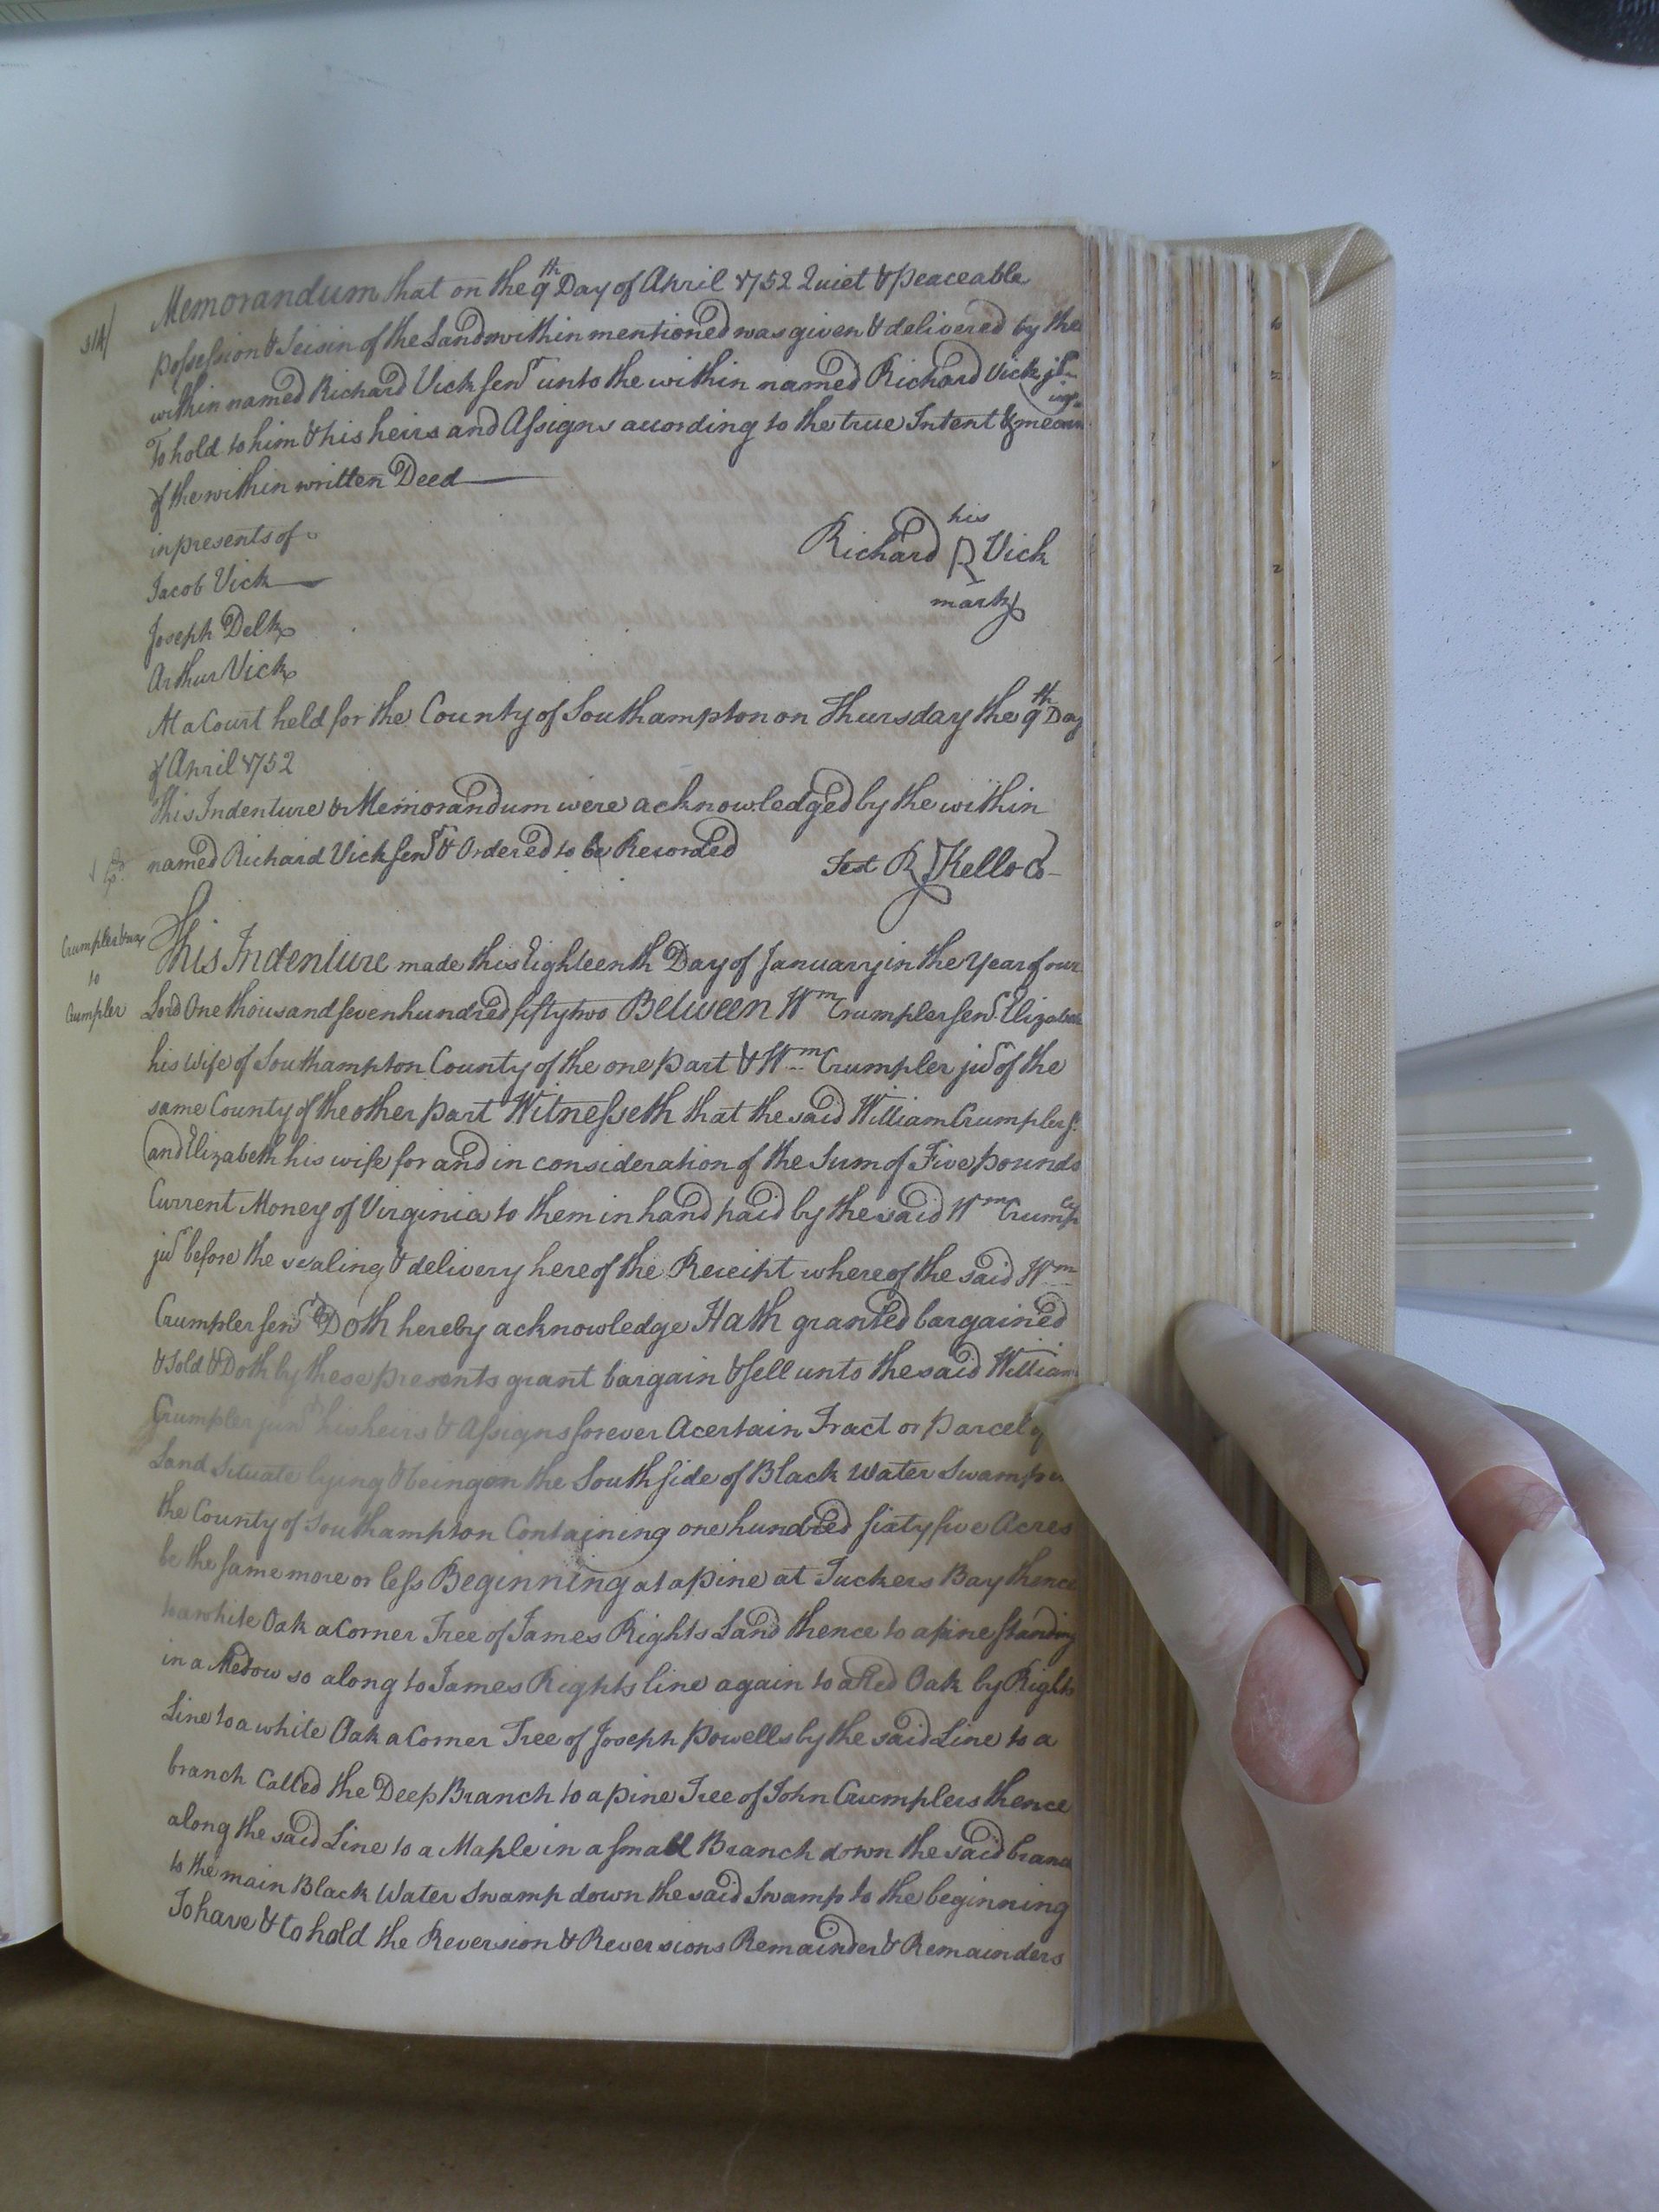 314
Memorandum that on the 9th Day of April 1752 Quiet & peaceable
possession & Seisin of the Land within mentioned was given & delivered by the
within named Richard Vick senr unto the within named Richard Vick jr
To hold to him & his heirs and Assigns according to the true Intent & meaning
of the within written Deed
in presents of
Richard his R mark Vick
Jacob Vick
Joseph Delk
Arthur Vick
At a Court held for the County of Southampton on Thursday the 9th Day
of April 1752
This Indenture & Memorandum were acknowledged by the within
named Richard Vick senr & Ordered to be Recorded
Test R Kello Co
Crumpler & ux
to
Crumpler
This Indenture made this Eighteenth Day of January in the Year of our
Lord One thousand seven hundred fifty two Between Wm Crumpler senr Elizabeth
his Wife of Southampton County of the one part & Wm Crumpler jur of the
same County of the other part Witnesseth that the said William Crumpler s.
and Elizabeth his wife for and in consideration of the Sum of Five pounds
Current Money of Virginia to them in hand paid by the said Wm Crumpler
jur before the sealing & delivery hereof the Receipt whereof the said Wm
Crumpler senr Doth hereby acknowledge Hath granted bargained
& Sold & Doth by these presents grant bargain & sell unto the said William
Crumpler junr his heirs & Assigns forever A certain Tract or parcel of
Land Situate lying & being on the South side of Black Water Swamp in
the County of Southampton Containing one hundred sixty five Acres
be the same more or less Beginning at a pine at Tuckers Bay thence
to a white Oak a Corner Tree of James Rights Land thence to a pine standing
in a Medow so along to James Rights line again to a Red Oak by Rights
Line to a white Oak a Corner Tree of Joseph Powells by the said Line to a
branch Called the Deep Branch to a pine Tree of John Crumplers thence
along the said Line to a Maple in a small Branch down the said branch
to the main Black Water Swamp down the said Swamp to the beginning
To have & to hold the Reversion & Reversions Remainder & Remainders